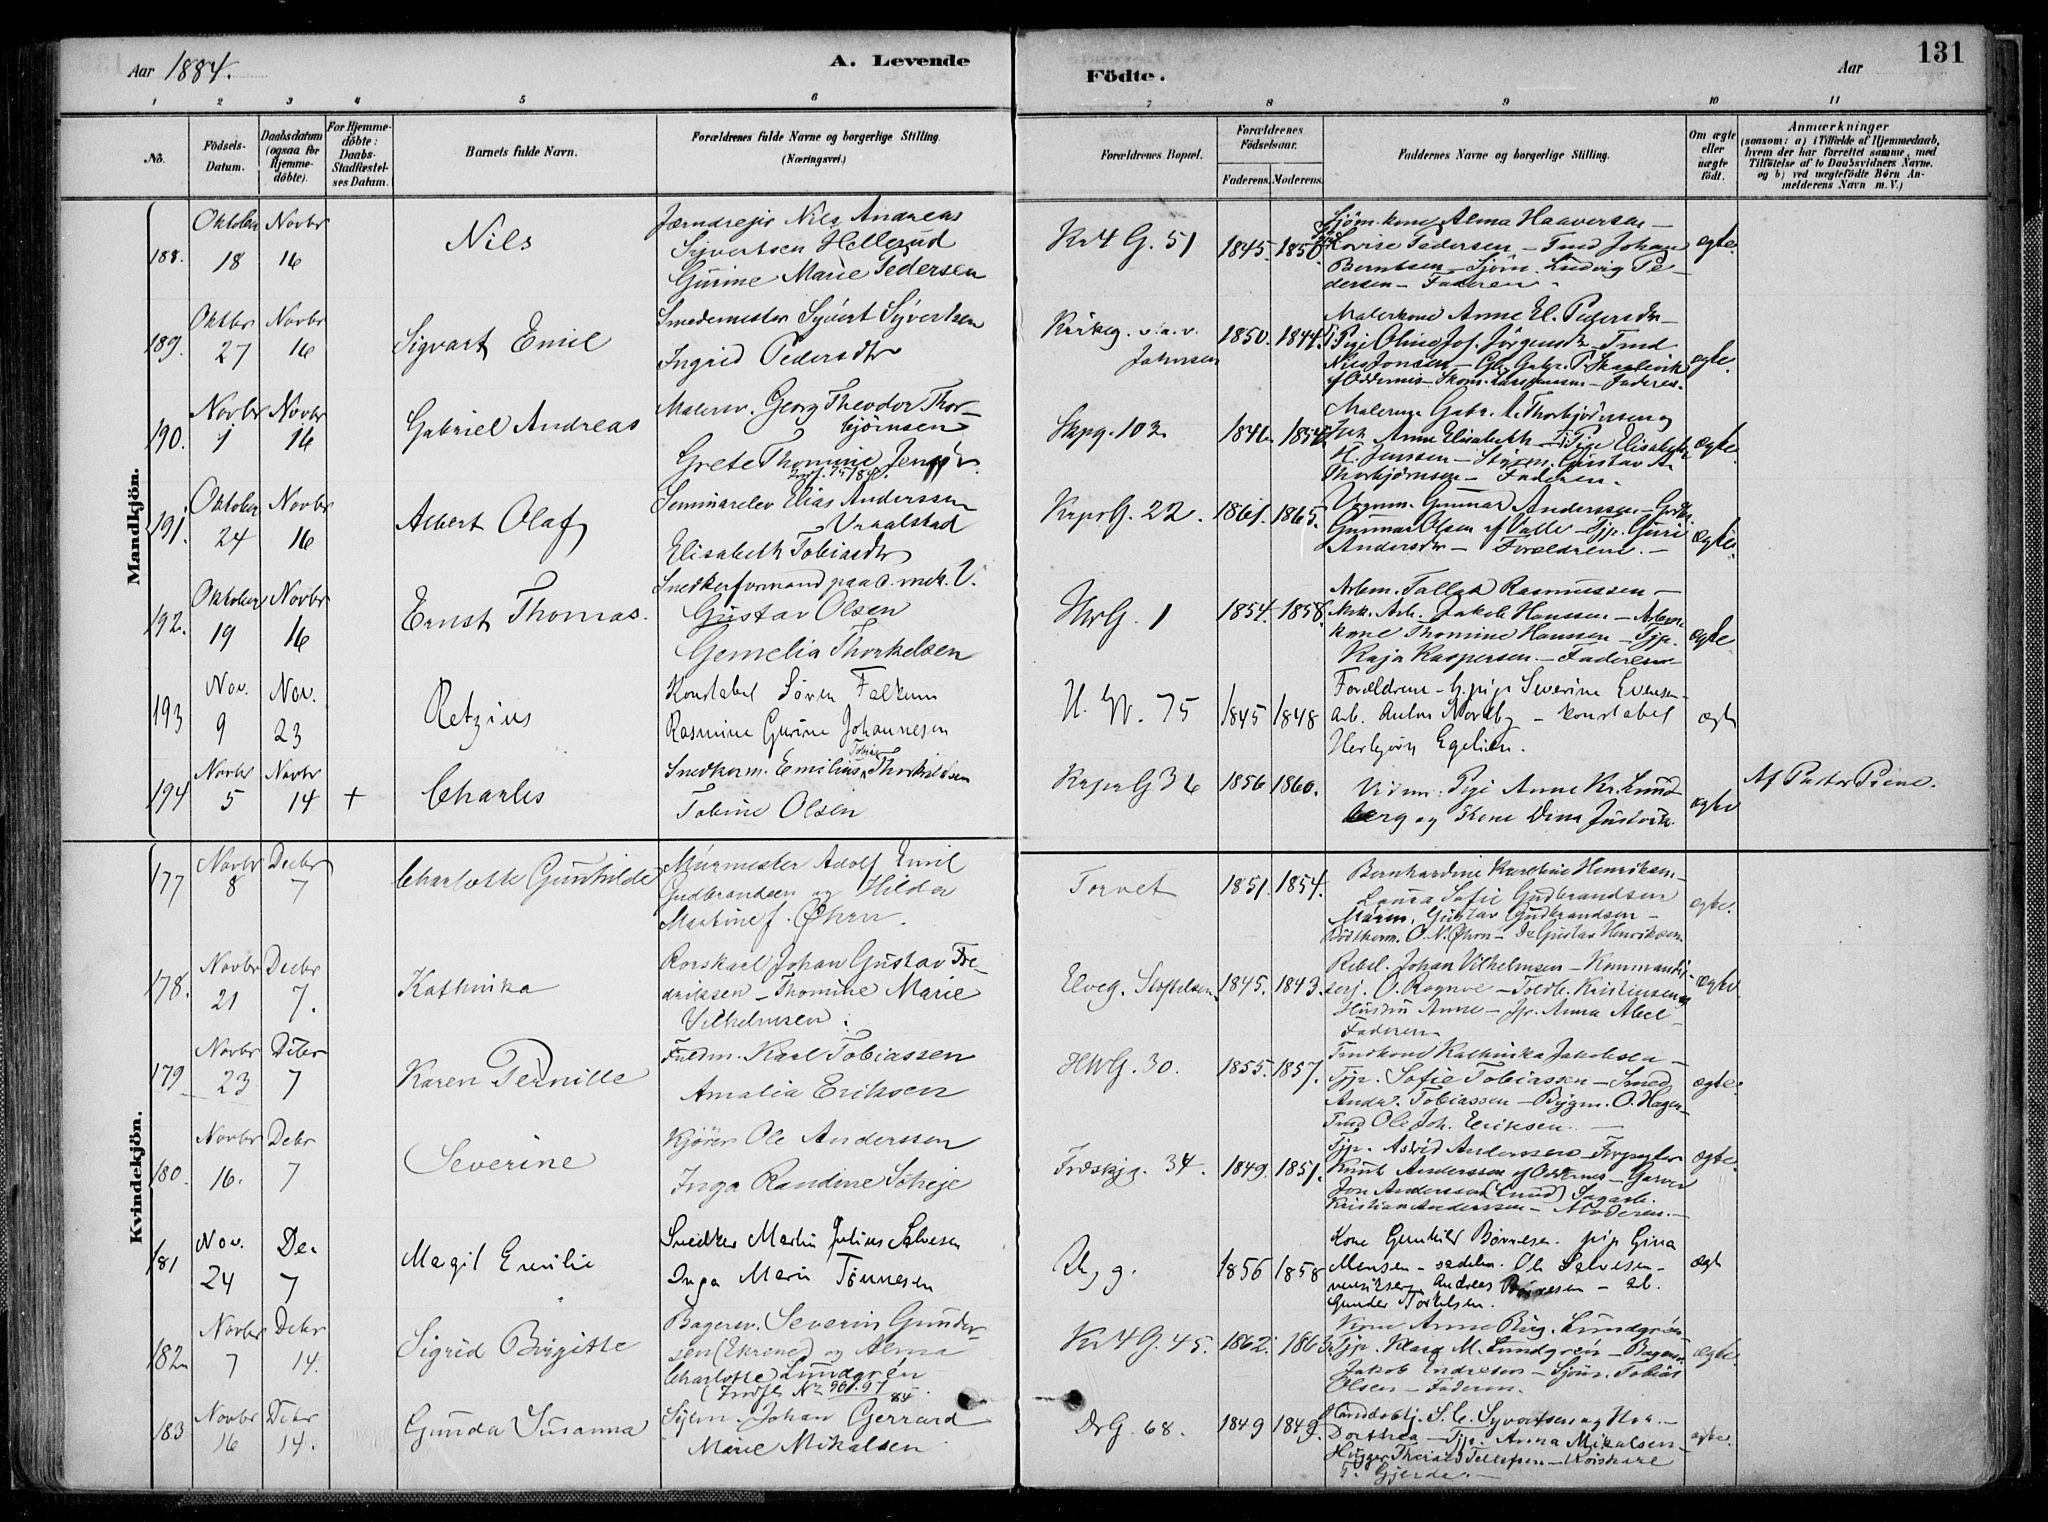 Aar 1884.
A. Levende
Födte.
Aar
131
1 2 3 4 5 6 7 8 9 10 11
No.
Födsels-Datum.
Daabsdatum (ogsaa för Hjemme-döbte).
For Hjemme-döbte: Daabs-Stadfæstel-ses Datum.
Barnets fulde Navn.
Forældrenes fulde Navne og borgerlige Stilling. (Næringsvei.)
Forældrenes Bopæl.
Forældrenes Födselsaar.
Faderens. Moderens.
Faddernes Navne og borgerlige Stilling.
Om ægte eller uægte födt.
Anmærkninger
(saasom: a) i Tilfælde af Hjemmedaab,
hvem der har forrettet samme, med
Tilföielse af to Daabsvidners Navne.
og b) ved uægtefödte Börn An-
melderens Navn m. V.)
Mandkjön.
188. Oktober 18 Novbr 16
Nils
Nils Andreas
Syvertsen Hellesund
Gurine Marie Pedersen
Kr4 G. 51
1845. 1850
Sjøm. kone Alma Haaversen –
Lovise Pedersen – Tmd Johan
Berntsen – Sjøm. Ludvig Pe-
dersen – Faderen.
ægte.
189. Oktbr 27 Novbr 16
Sigvart Emil
Smedemester Syvert Syvertsen
Ingrid Pedersdtr
Kirkeg. v. a. v.
Johnsen
1850. 1844.
Malerkone Anne El. Pedersdtr –
Nils Jonsen –
af Oddernes – Faderen.
ægte.
190. Novbr 1 Novbr 16
Gabriel Andreas
Malersv. Georg Theodor Thor-
bjørnsen
Grete Thomine
Skpg. 102
Malersv. Gabr. A. Thorbjørnsen og
Anne Elisabeth – Pige Elisabeth
H. Jensen – Styrm. Gustav A.
Thorbjørnsen – Faderen.
ægte.
191. Oktober 24 Novbr 16
Albert Olaf
Seminarelev Elias Anderssen
Uraalstad
Elisabeth Tobiasdtr
KrprG. 22.
1861. 1865.
Gunnar Anderssen –
Gunnar Olsen af Valle – Tjp. Guri
Andersdtr – Forældrene. –
ægte.
192. Oktober 19 Novbr 16
Ernst Thomas.
Snedkerformand paa C. mek. V.
Gustav Olsen
Gemelia Thorkelsen
HrG. 1
1854. 1858.
Arbm. Tallak Rasmussen –
Mek. Arb. Jakob Hanssen – Arbm
kone Thomine Hanssen – Tjp.
Kaja Kaspersen – Faderen
ægte
193 Nov. 9 Nov. 23
Retzius
Konstabel Søren Falkum
Rasmine Gurine Johannesen
H. W. 75
1845 1848
Forældrene – Severine Evensen –
arb. Anton Nordby – konstabel
Herbjørn Egelien.
ægt
194 Novbr 5 Novbr 14 +
Charles
Snedkerm. Emilius Tobias Thorkildsen
Tobine Olsen
KrprG 36
1856 1860.
Vidnn: Pige Anne Kr. Lund-
berg og Kone Dina
ægte
Af Pastor Piene.
Kvindekjön.
177 Novbr 8 Decbr 7
Charlotte Gunhilde
Murmester Adolf Emil
Gudbrandsen og Hilda
Martine f. Øhrn.
Torvet
1851. 1854.
Bernhardine Karoline Henriksen –
Laura Sofie Gudbrandsen
Murm. Gustav Gudbrandsen –
Bødkerm. O. N. Øhrn – Gustav Henriksen.
ægte.
178. Novbr 21 Decbr 7.
Kathinka
Rorskarl Johan Gustav Fre-
drikssen – Thomine Marie
Vilhelmsen.
Elveg.
1845. 1843.
Rebsl. Johan Vilhelmsen –
Toldb. Kristensen og
Hustru Anne – Jp. Anna Abel –
Faderen –
ægte.
179 Novbr 23 Dcbr 7
Karen Pernille
Karl Tobiassen
Amalia Eriksen
HWG. 30.
1855. 1857.
Tmdkone Kathinka Jakobsen –
Tjp. Sofie Tobiassen – Smed
Andr. Tobiassen – Bygm. O. Hagen –
Tmd Ole Joh. Eriksen. –
ægte.
180. Novbr 16. Debr 7
Severine
Kjører Ole Anderssen
Inga Randine Scheje
Træskjg. 34.
1849. 1851.
Tjp. Astrid Anderssen –
Knut Anderssen af Oddernes – Garver
Jon Anderssen
Kristian Anderssen – Moderen. –
ægte.
181 Nov. 24 De. 7
Magil Emilie
Snedker Martin Julius Salvesen
Inga Marie Tønnesen
1856 1858
Kone Gunhild Børresen. pige Gina
Monsen – Ole Salvesen –
Andreas – ab.
Gunder Torkelsen.
ægt
182 Novbr 7 Debr 14.
Sigrid Birgitte
Bagersv. Severin Gunder-
sen (Ekrene) og Alma
Charlotte Lundgrén
Kr4G. 45.
1862. 1863
Kone Anne Birg. Lundgrén
Tjp. Klara M. Lundgrén – Bagersv.
Jakob Endresen – Sjøm. Tobias
Olsen – Faderen.
ægte.
183 Novbr 16 Debr 14.
Gunda Susanna
Sjøm. Johan Gerrard
Marie Mikalsen
DrG. 68.
1849 1849.
Handsbtj. S. C. Syvertsen og
Dorthea – Tjp. Anna Mikalsen –
Tellefsen –
T. Gjerde. –
ægte.